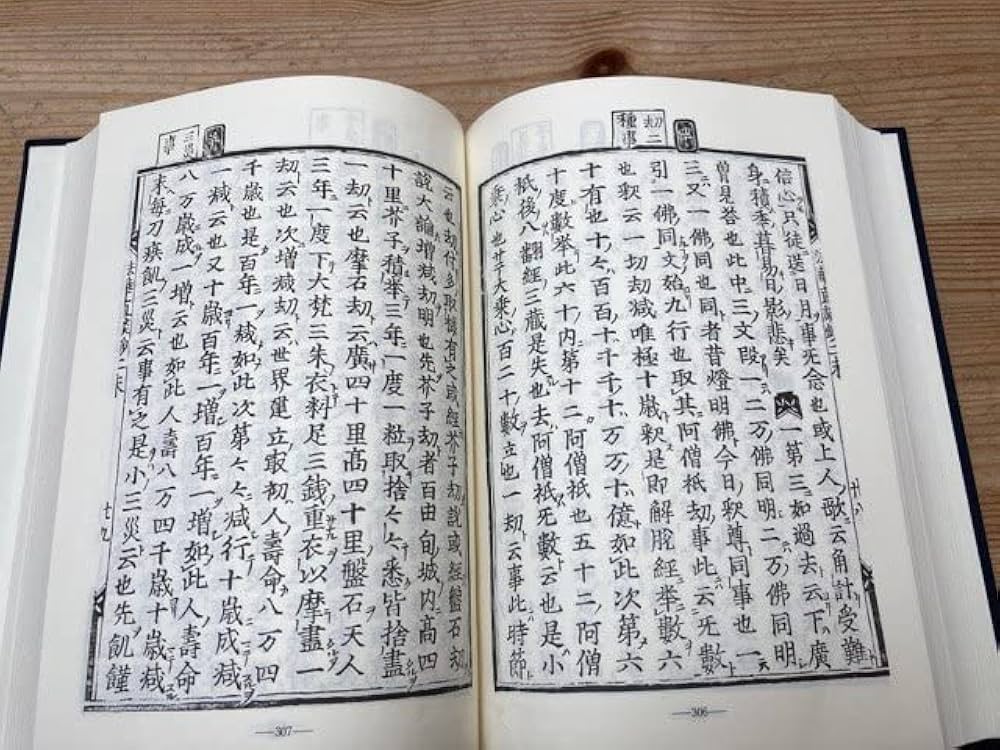 劫二
種事
信心只徒送日月事死念也或上人歌云角計受難
身積季暮易日影悲矣 一第三如過去云下廣
曽見荅也此中三文段一二万佛同明二万佛同明
三又一佛同也同者昔燈明佛今日釈尊同事也一
引一佛同文始九行也取其阿僧祇劫事此云旡數
也釈云一切劫減唯極十歳釈是即解脱經举數六
十有也十々百百十千千十万万十億如此次第六
十度數举此六十内第十二阿僧祇也五十二阿僧
祇後八翻經三蔵是失也去阿僧祇旡數云也是小
乗心也廿于大乗心百二十數立也一劫云事此時節
306
三災
事
云也劫付多取様有之或經芥子劫說或經盤石劫
說大論増減劫明也先芥子劫者百由旬城内高四
十里芥子積举三年一度一粒取捨々々悉皆捨盡
一劫云也摩石劫云廣四十里高四十里盤石天人
三年一度下大梵三朱衣料足三銭重衣以摩盡一
劫云也次増減劫云世界建立㝡初人壽命八万四
千歳也是百年一減如此次第々々減行十歳成減
一減云也又十歳百年一増百年一増如此人壽命
八万歳成一増云也如此人壽八万四千歳十歳減
末每刀疾飢三災云事有之是小三災云也先飢饉
廿九
307